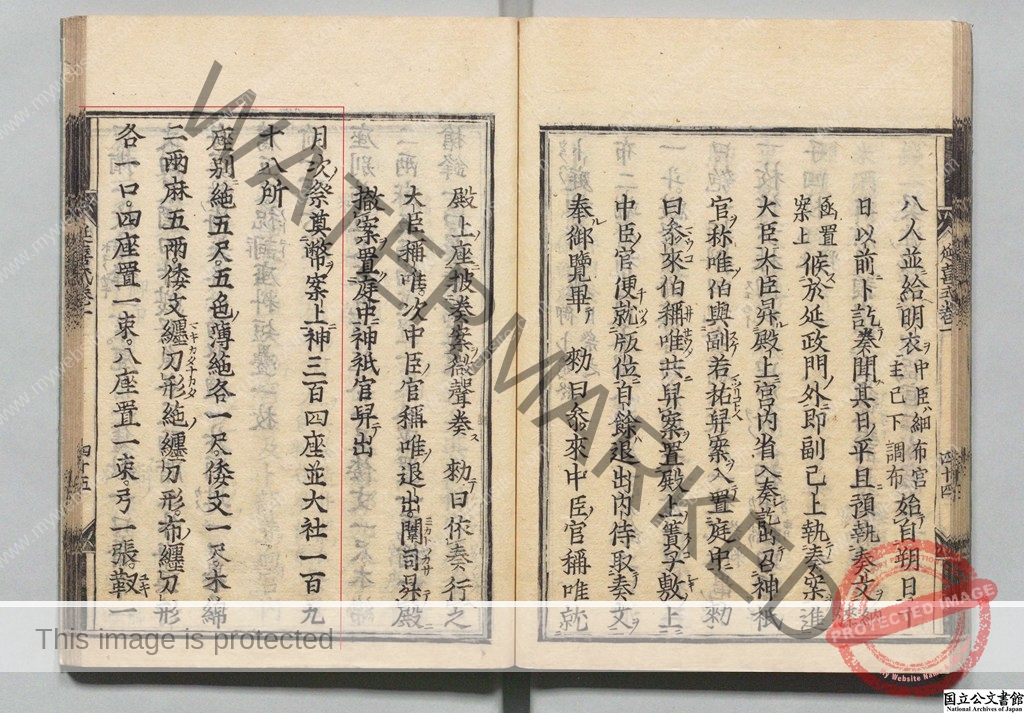 八人並給明衣 中臣細布宮主已下調布 始自朔日
日以前卜訖奏聞其日平旦預執奏文
置案上候於延政門外即副已上執奏案進
大臣大臣昇殿上宮内省入奏訖出召神祇
官称唯伯與副若祐舁案入置庭中勅
曰参來伯稱唯共舁案置殿上簀子敷上
中臣官便就版位自餘退出内侍取奏文
奉御覽畢 勅曰参來中臣官稱唯就
殿上座披奏案微聲奏 勅曰依奏行之
大臣稱唯次中臣官稱唯退出闈司昇殿
撤案置庭中神祇官舁出
月次祭奠幣案上神三百四座並大社一百九
十八所
座別絁五尺五色薄絁各一尺倭文一尺木綿
二兩麻五兩倭文纒刀形絁纒刀形布纒刀形
各一口四座置一束八座置一束弓一張靫一
延喜式卷一
四十四
延喜式卷一
四十五
WATERMARKED
This image is protected
PROTECTED IMAGE
My Website Name
国立公文書館
National Archives of Japan